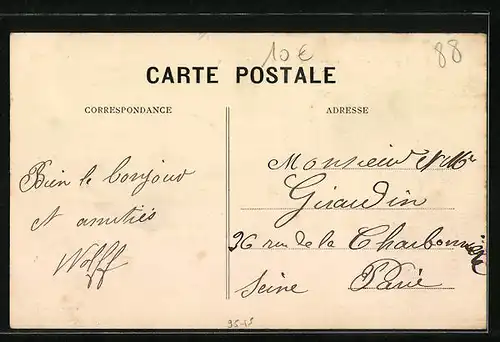 10€
88
CARTE POSTALE
CORRESPONDANCE
ADRESSE
Bien le bonjour
et amitiés
Wolff
Monsieur & Mme
Girardin
96 rue de la Charbonnière
Seine Paris